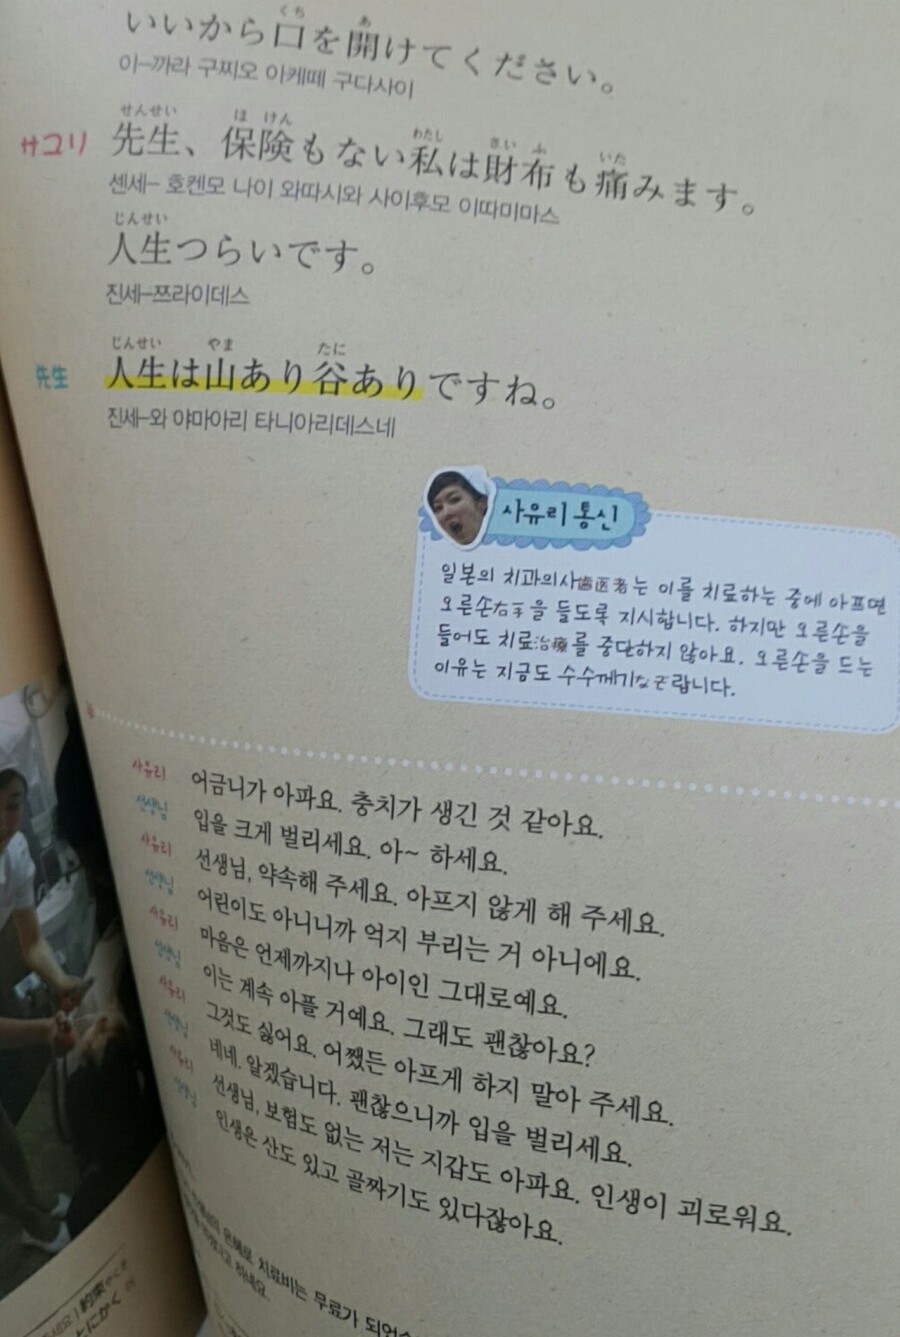 いいから口を開けてください。
이-까라 구찌오 아케떼 구다사이
サユリ 先生、保険もない私は財布も痛みます。
센세- 호켄모 나이 와따시와 사이후모 이따미마스
人生つらいです。
진세-쯔라이데스
先生 人生は山あり谷ありですね。
진세-와 야마아리 타니아리데스네
사유리 통신
일본의 치과의사歯医者는 이를 치료하는 중에 아프면
오른손右手을 들도록 지시합니다. 하지만 오른손을
들어도 치료治療를 중단하지 않아요. 오른손을 드는
이유는 지금도 수수께끼なぞ랍니다.
사유리 어금니가 아파요. 충치가 생긴 것 같아요.
선생님 입을 크게 벌리세요. 아~ 하세요.
사유리 선생님, 약속해 주세요. 아프지 않게 해 주세요.
선생님 어린이도 아니니까 억지 부리는 거 아니에요.
사유리 마음은 언제까지나 아이인 그대로예요.
선생님 이는 계속 아플 거예요. 그래도 괜찮아요?
사유리 그것도 싫어요. 어쨌든 아프게 하지 말아 주세요.
선생님 네네. 알겠습니다. 괜찮으니까 입을 벌리세요.
사유리 선생님, 보험도 없는 저는 지갑도 아파요. 인생이 괴로워요.
선생님 인생은 산도 있고 골짜기도 있다잖아요.
은혜로 치료비는 무료가 되었
約束